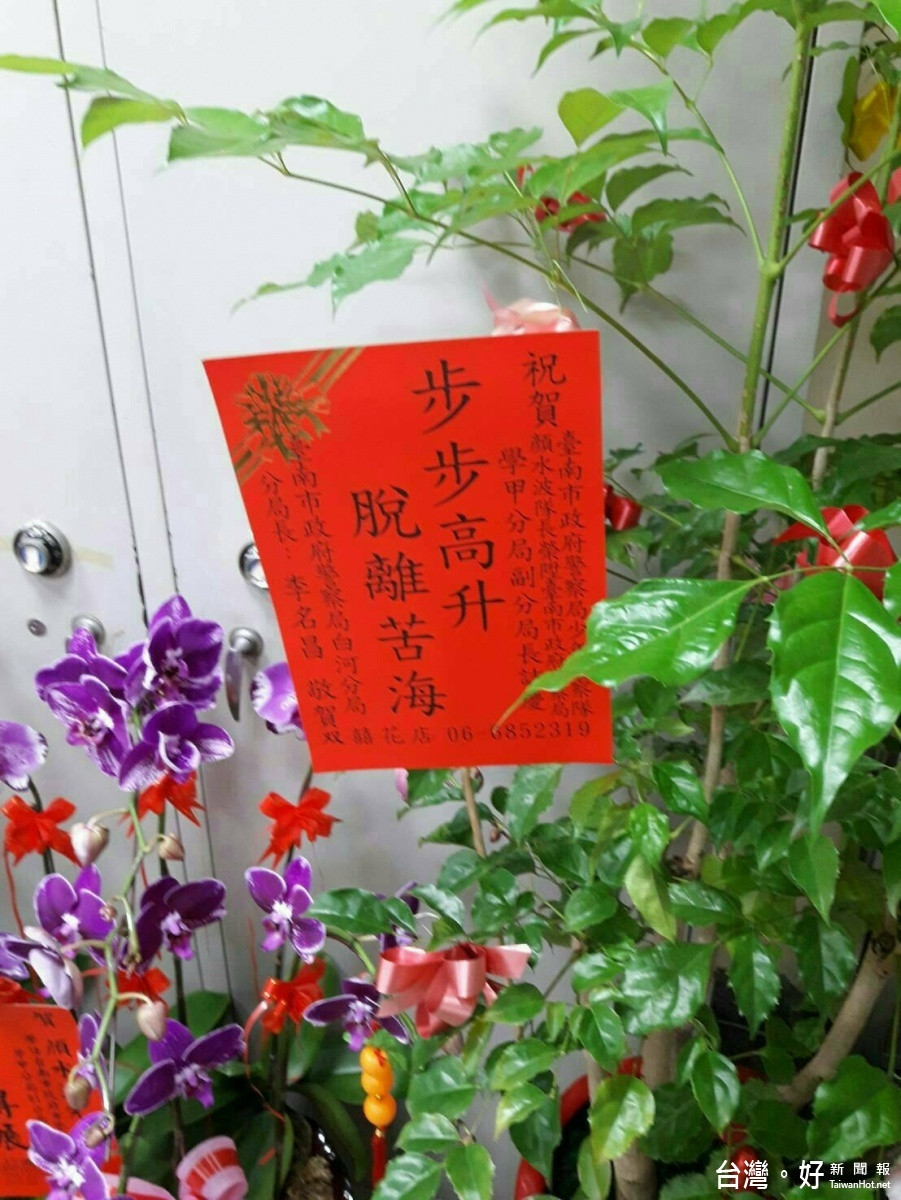 祝賀
臺南市政府警察局少
隊
顏水波隊長榮陞臺南市政府
局
學甲分局副分局長
慶
步步高升
脫離苦海
臺南市政府警察局白河分局
分局長：李名昌 敬賀
双囍花店 06-6852319
賀
顏
台灣。好新聞報
TaiwanHot.net